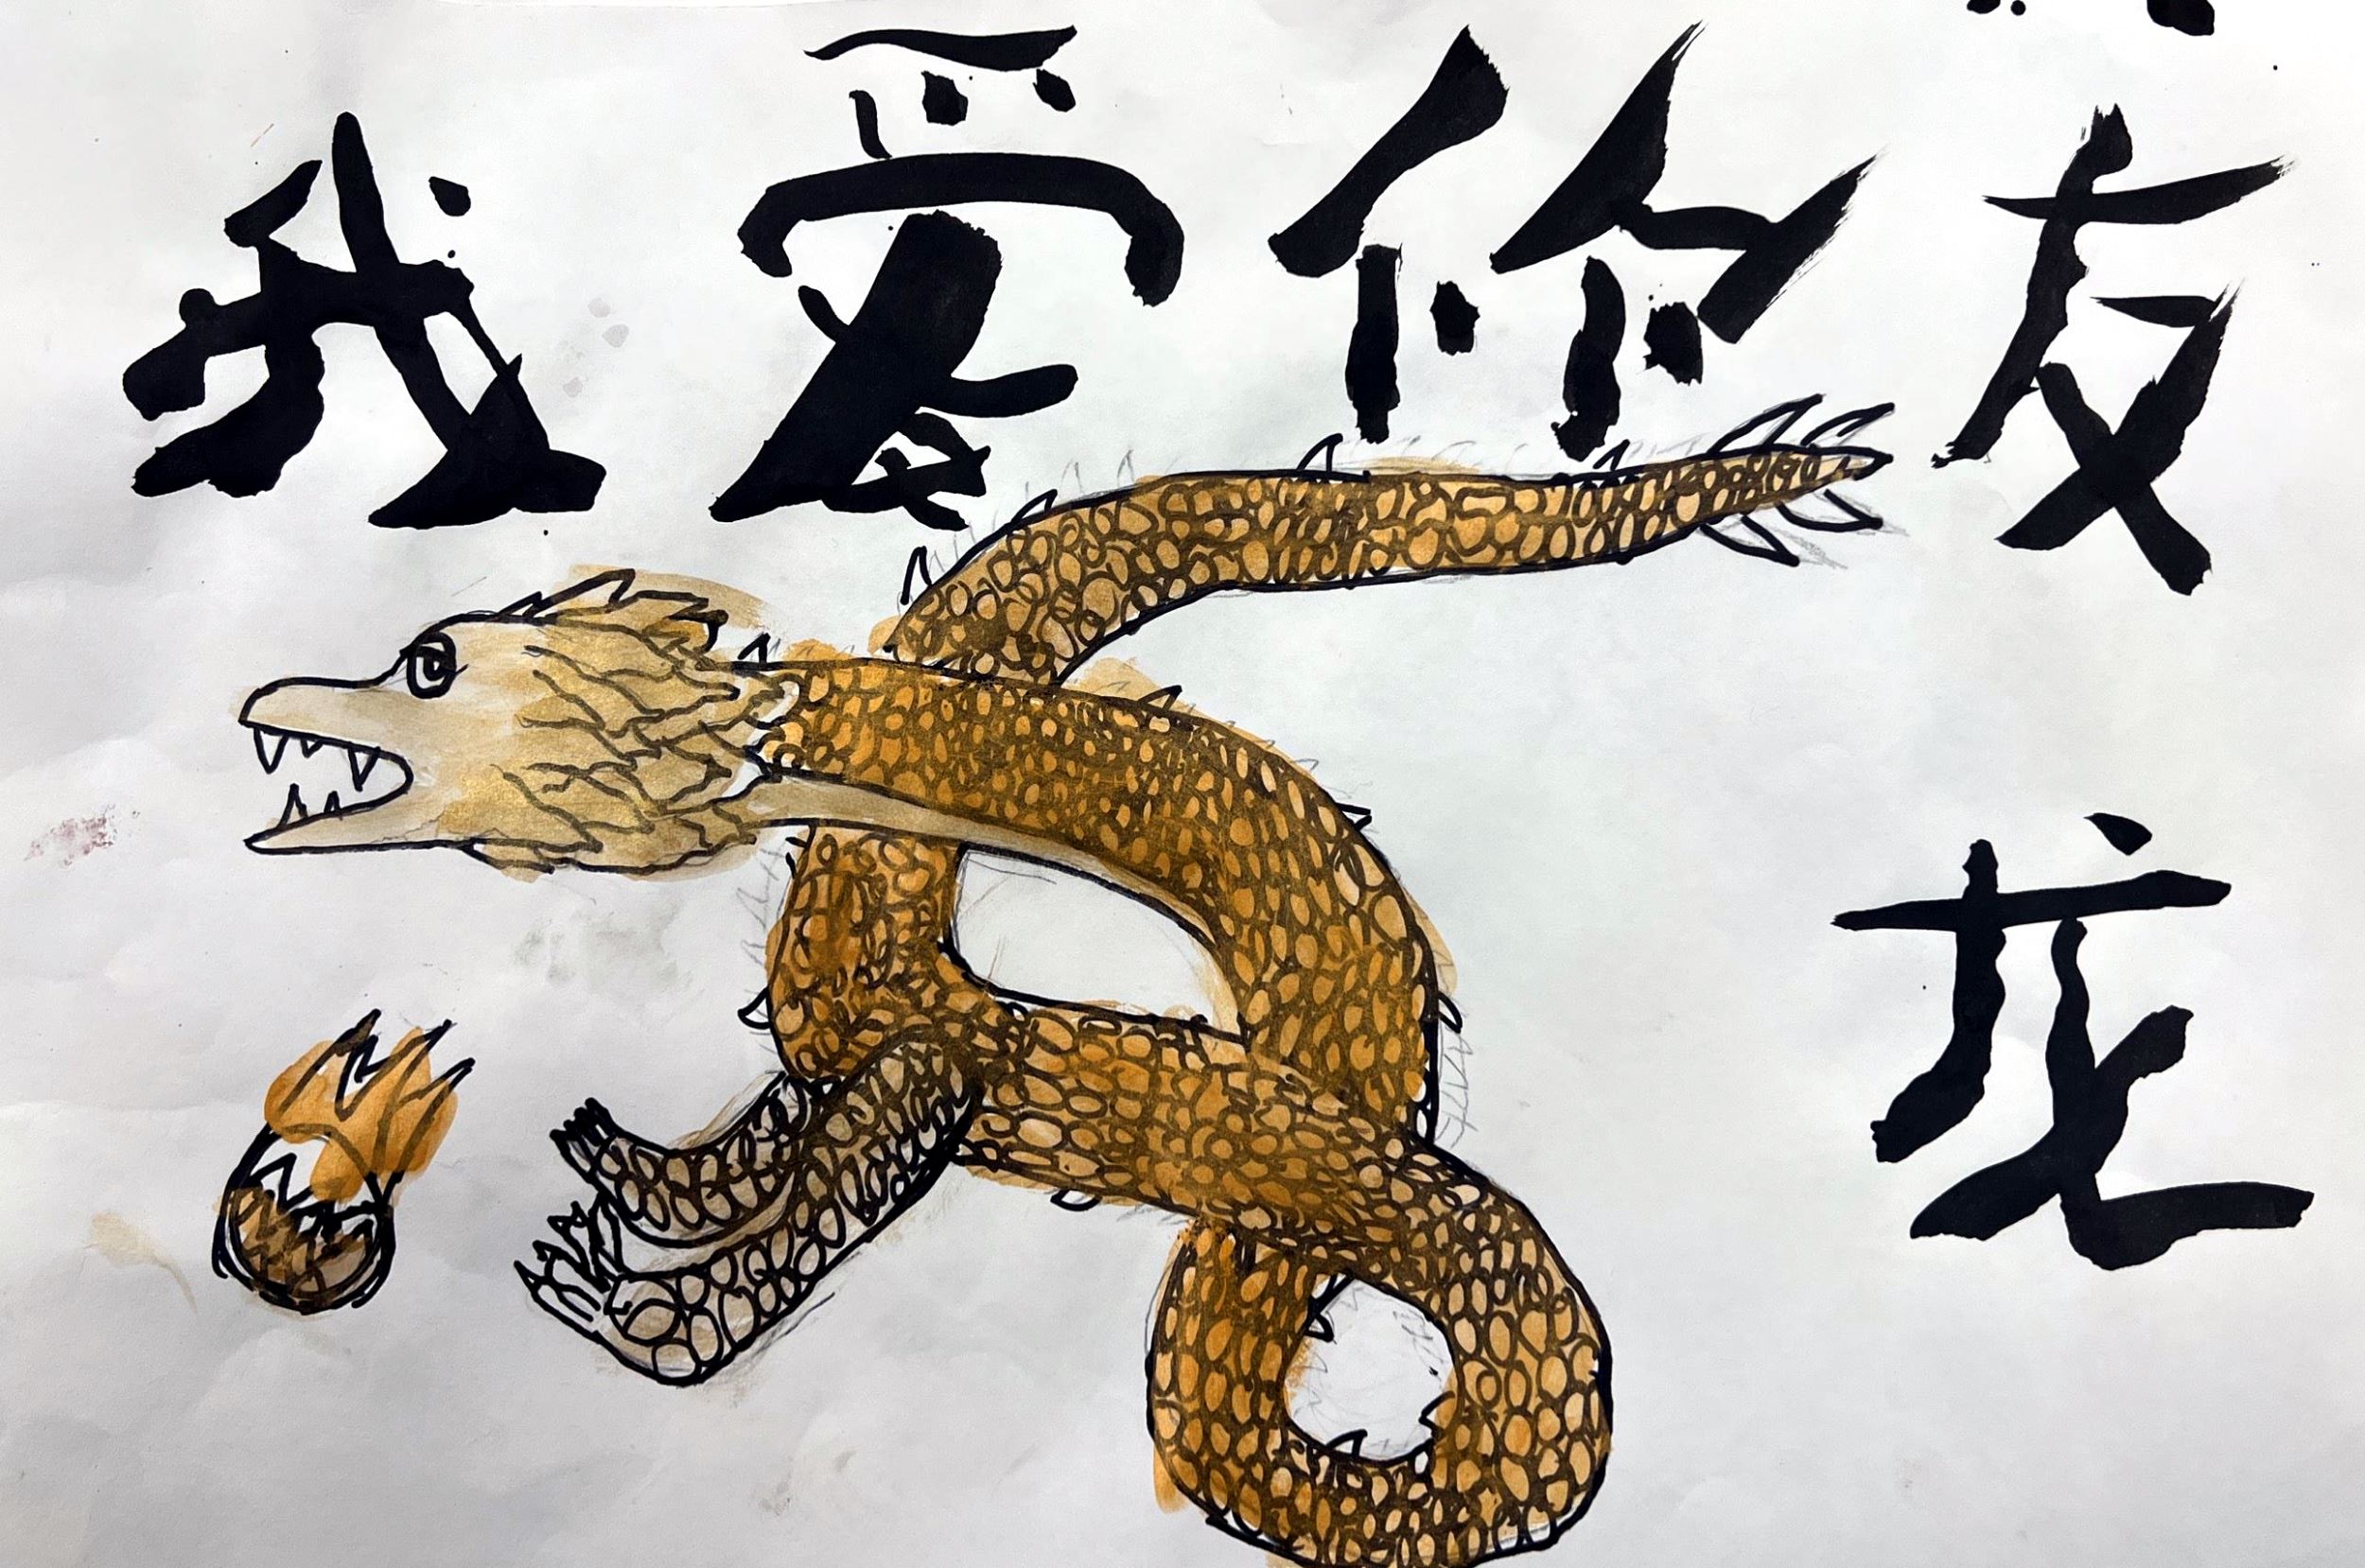 我爱你友
龙